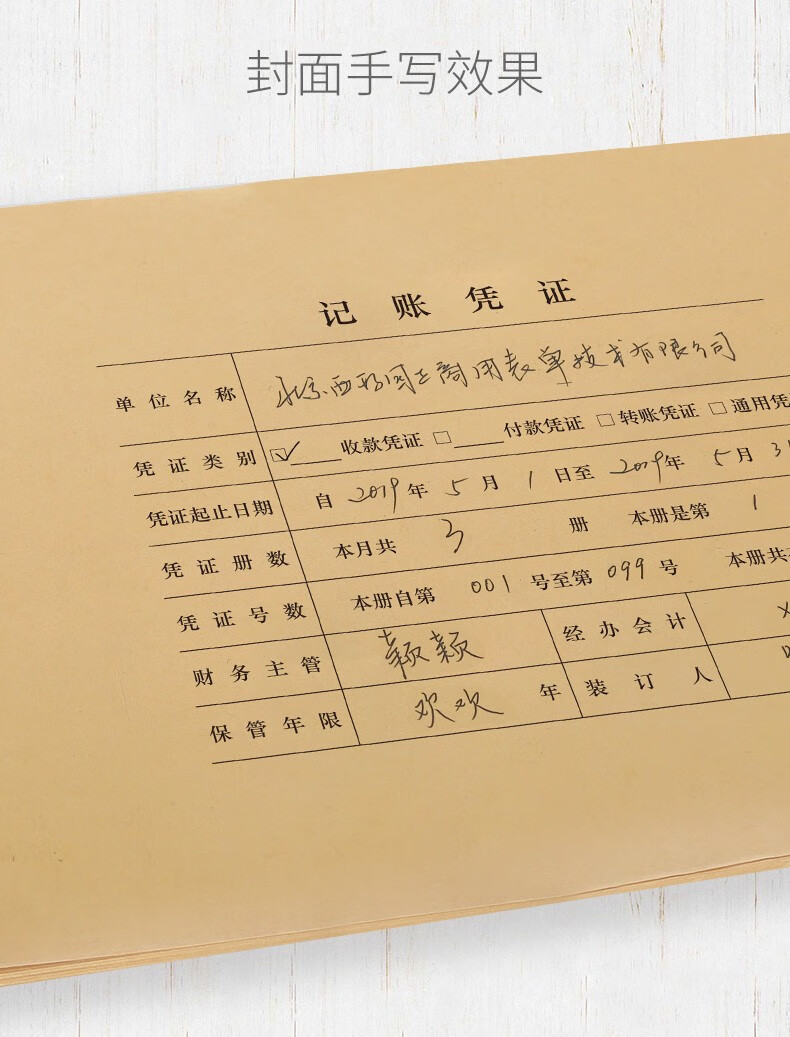 封面手写效果
记账凭证
单位名称 北京西玛园正商用表单技术有限公司
凭证类别 ☑收款凭证 □付款凭证 □转账凭证 □通用凭
凭证起止日期 自 2019 年 5 月 1 日至 2019 年 5 月 31
凭证册数 本月共 3 册 本册是第 1
凭证号数 本册自第 001 号至第 099 号 本册共
财务主管 颖颖 经办会计
保管年限 欢欢 年 装订人